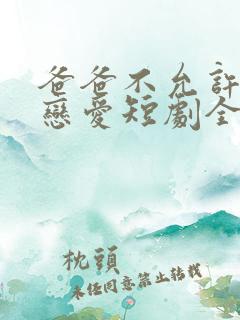 爸爸不允許
戀愛短劇全
枕頭
未經同意禁止轉載